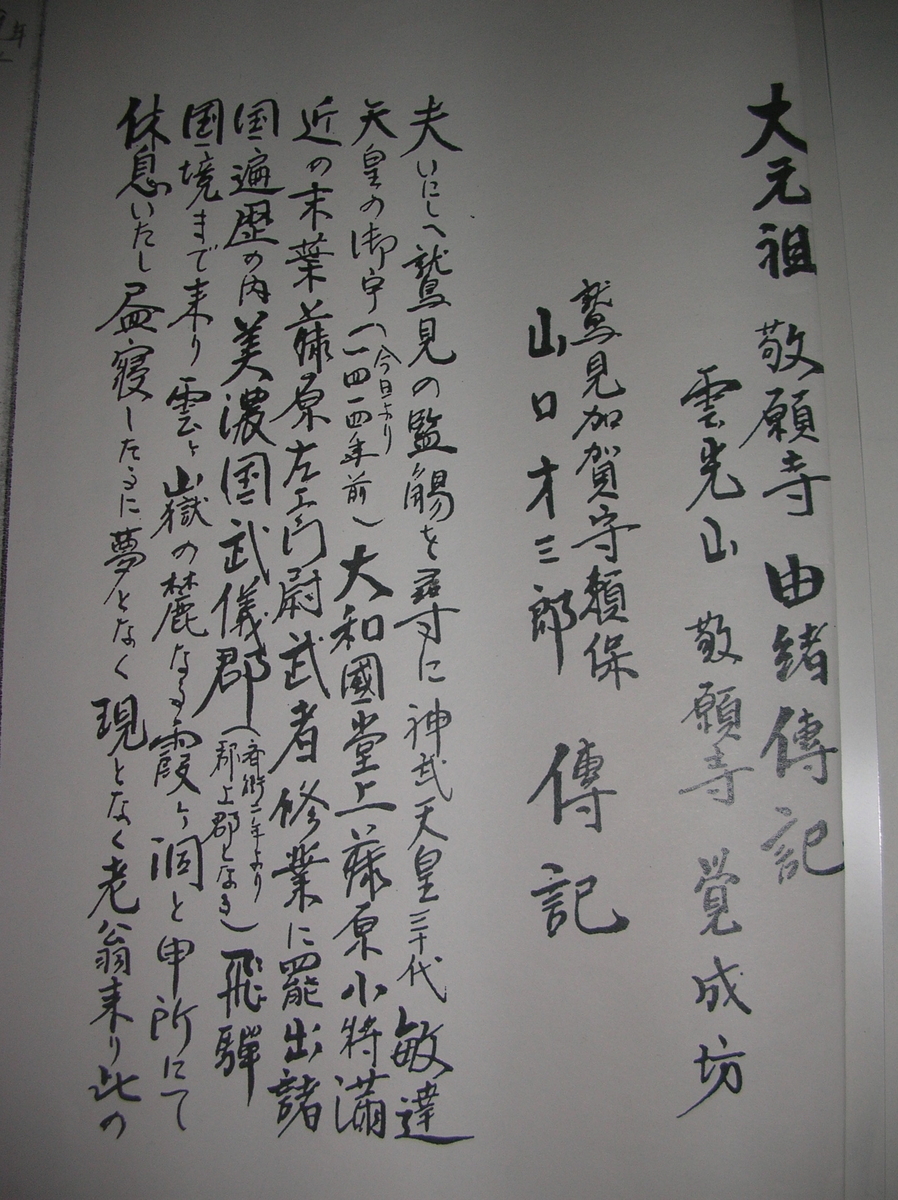 大元祖 敬願寺 由緒傳記
雲光山 敬願寺 覚成坊
鷲見加賀守頼保
山口才三郎 傳記
夫いにしへ鷲見の監觴を尋に神武天皇三十代敏達
天皇の御宇(今日より一四一四年前)大和國堂上藤原小将満
近の末葉藤原左エ門尉武者修業に罷出諸
国遍歴の内美濃国武儀郡(斉衡二年より郡上郡となる)飛騨
国境まで来り雲ヶ山嶽の麓なる霞ヶ洞と申所にて
休息いたし昼寝したるに夢となく現となく老翁来り此の
年